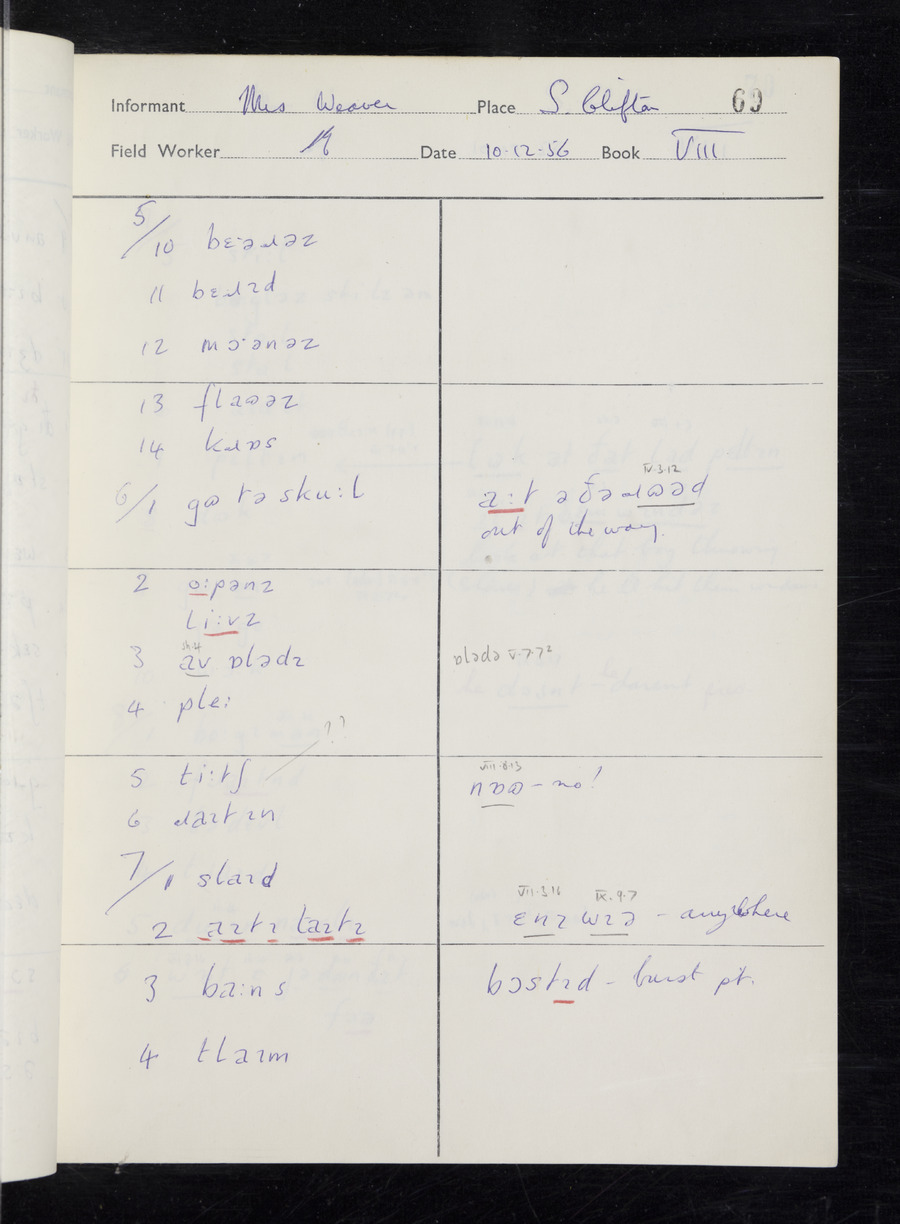 Informant Mrs Weaver Place S. Clifton 69
Field Worker Date 10·12·56 Book VIII
5/10 bɛ·əɹəz
11 bɛɹɪd
12 mɔ·ənəz
13 flaʊəz
14 kɹɒs
6/1 gʊ tə sku:l
IV.3.12
a:t ə ðə ɹʊəd
out of the way.
2 o:pənz
li:vz
3 av ɒlədɪ
ɒlədə V.7.7²
4 plei
??
5 ti:tʃ
VIII.8.13
nɒʊ – no!
6 ɹaɪtɪn
7/1 slaɪd
VII.3.16 IX.9.7
2 aɪtɪ taɪtɪ
ɛnɪ wɪə – anywhere
3 ba:ns
bɔstɪd – burst pt.
4 tlaɪm